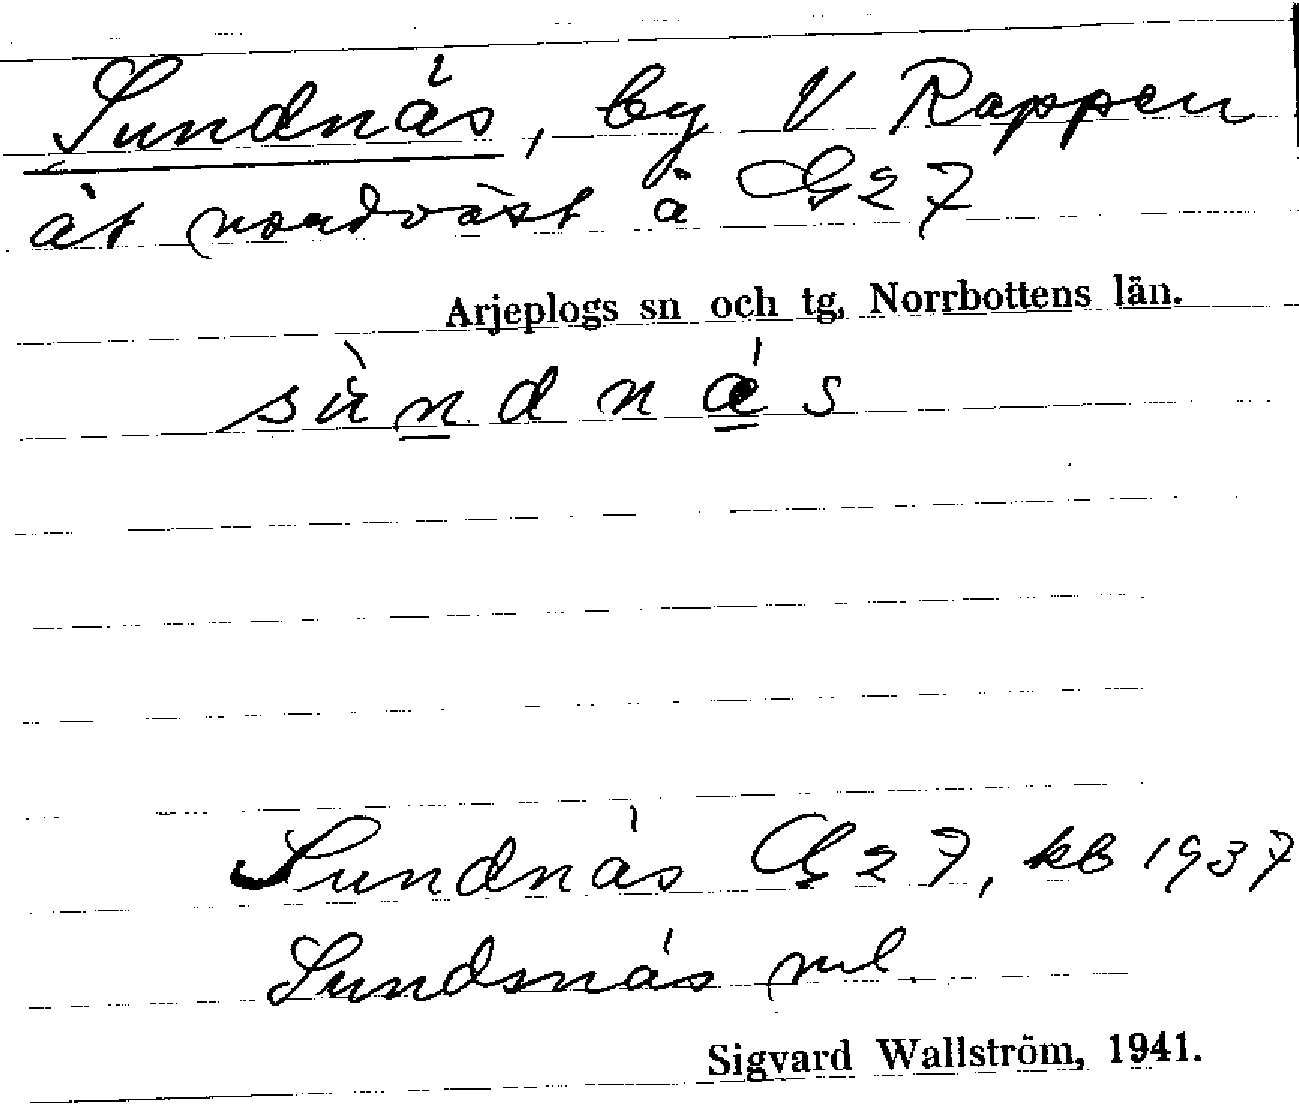 Sundnäs, by V Rappen
åt nordväst å G27
Arjeplogs sn och tg, Norrbottens län.
sùndnǽs
Sundnäs G27, kb 1937
Sundsnäs ml.
Sigvard Wallström, 1941.